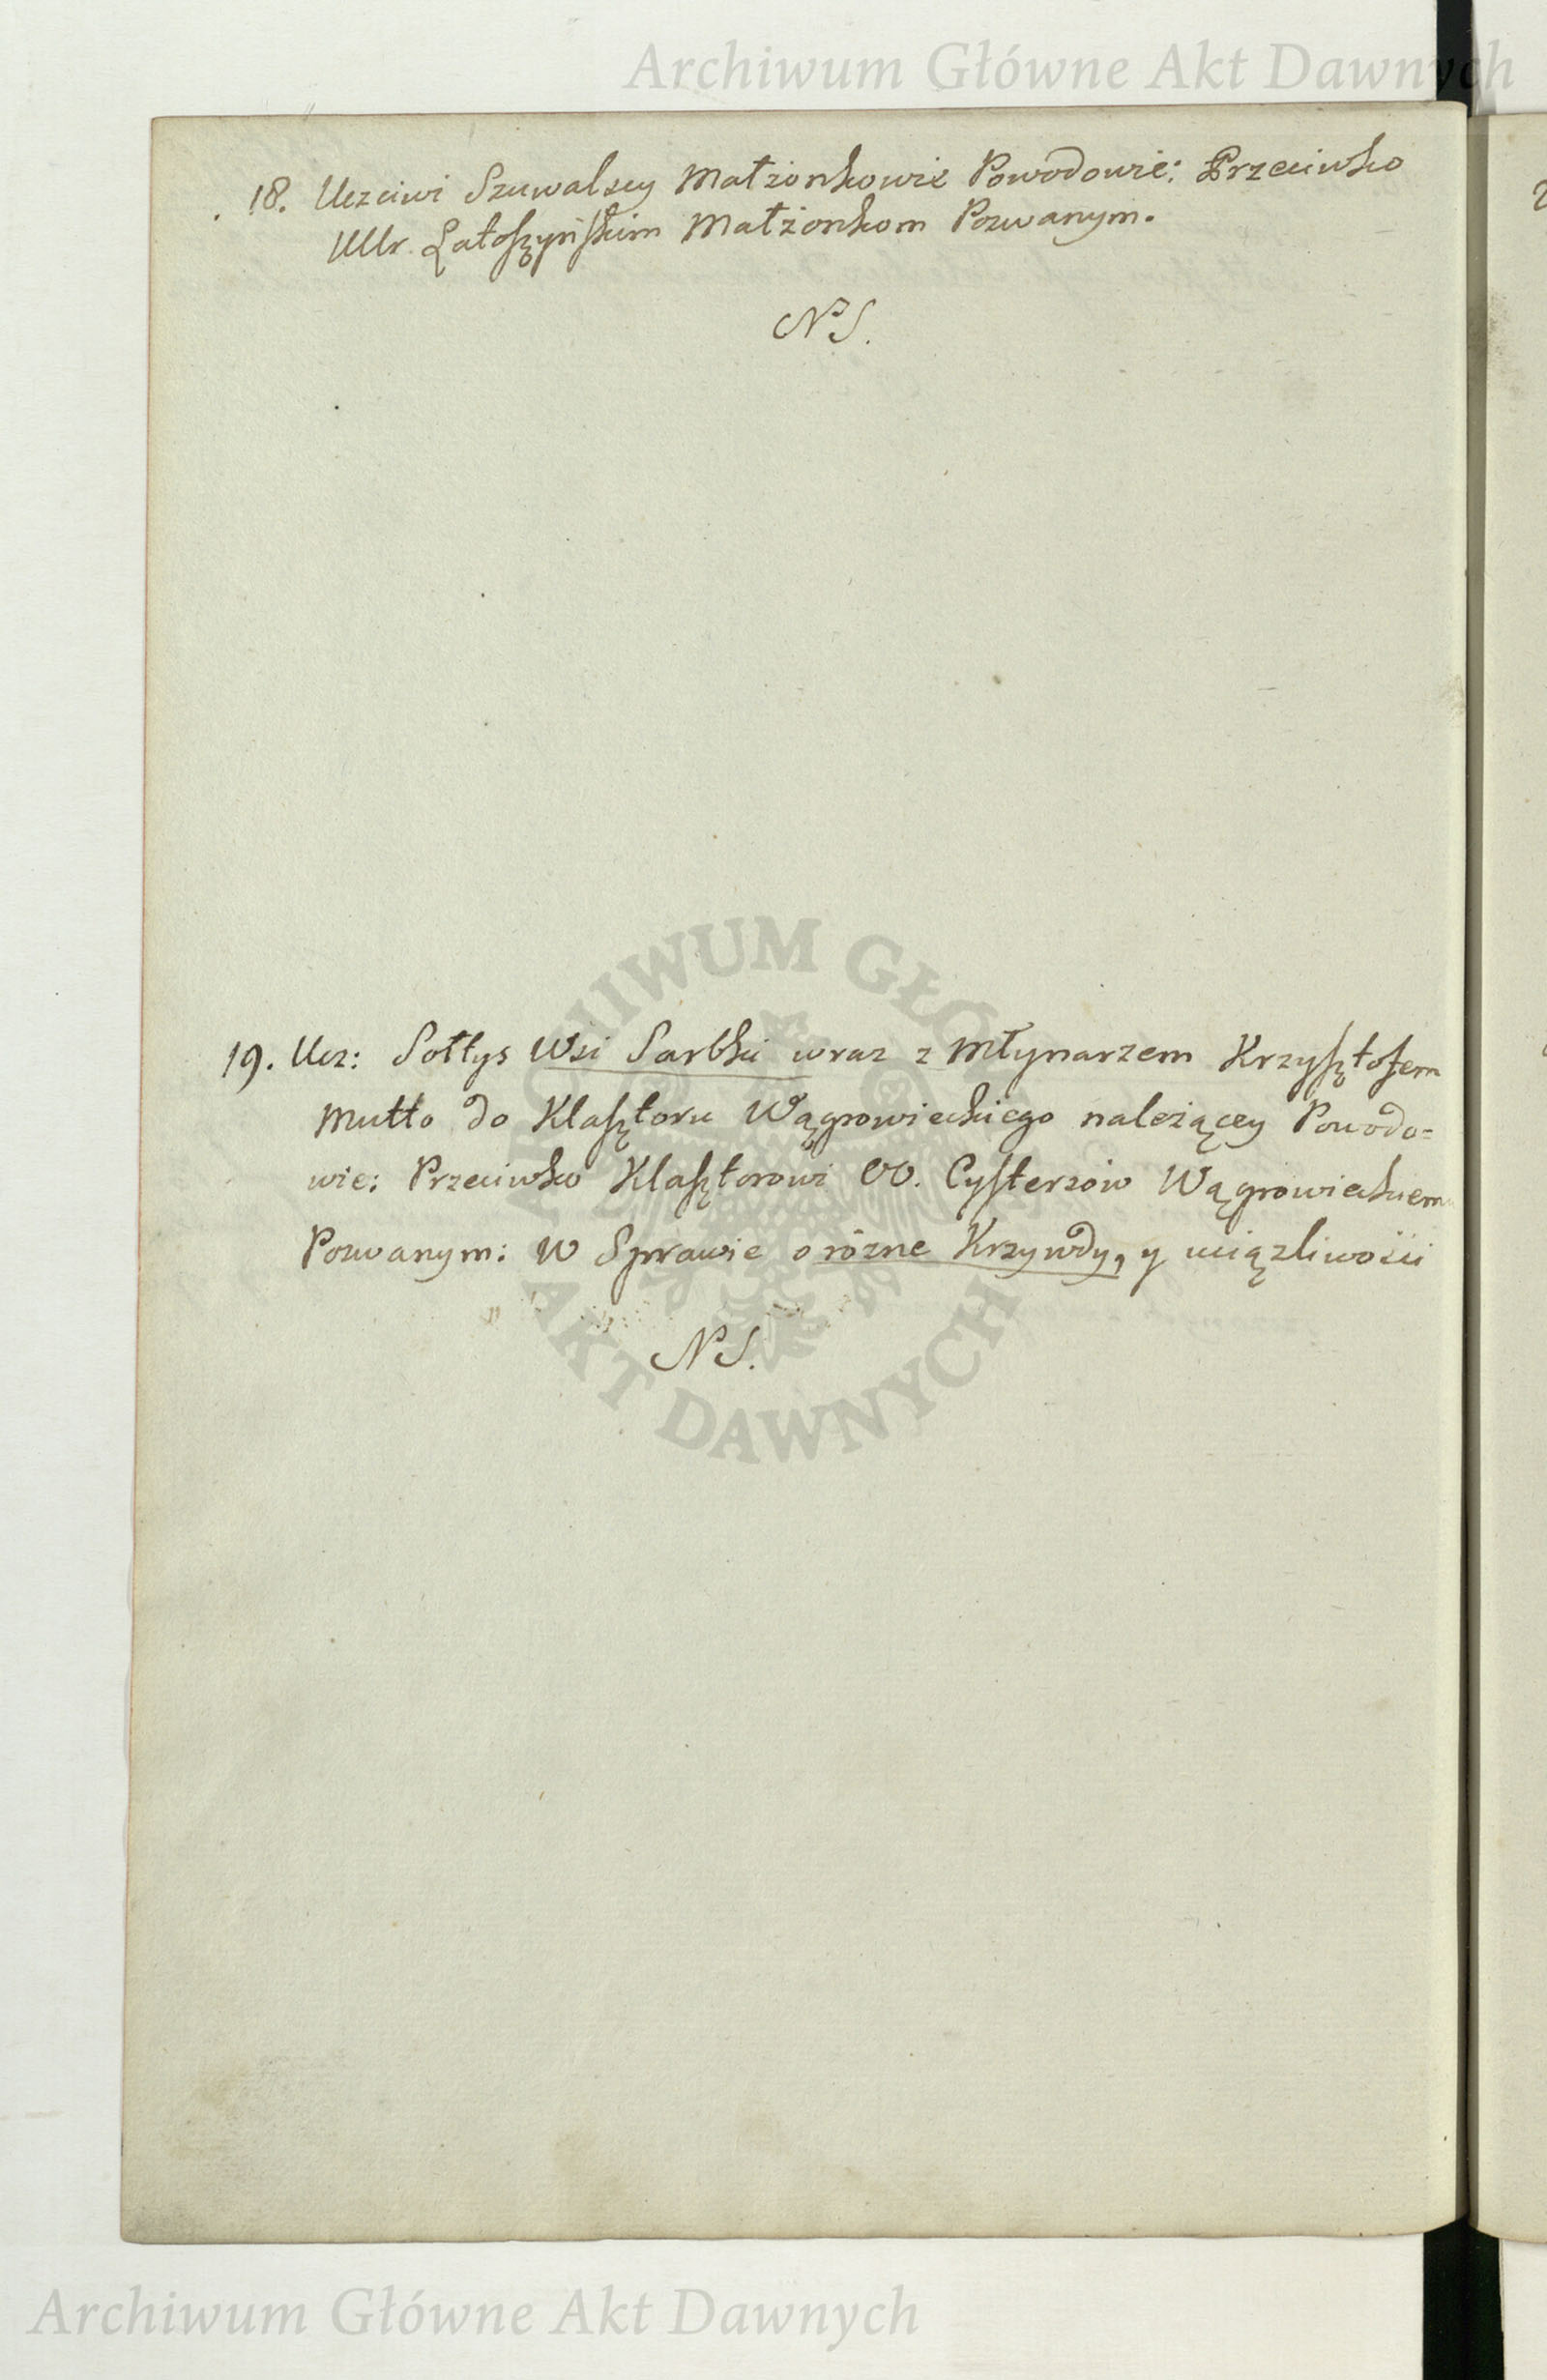 Archiwum Główne Akt Dawnych
18. Uczciwi Szuwalscy Małżonkowie Powodowie: Przeciwko
Ur. Latoszyńskim Małżonkom Pozwanym.
NS.
19. Ucz: Sołtys Wsi Sarbki wraz z Młynarzem Krzysztofem
Mutto do Klasztoru Wągrowieckiego należącey Powodo=
wie: Przeciwko Klasztorowi OO. Cystersów Wągrowieckiem
Pozwanym: W Sprawie o rózne Krzywdy, y uciązliwości
NS.
ARCHIWUM GŁÓWNE AKT DAWNYCH
Archiwum Główne Akt Dawnych